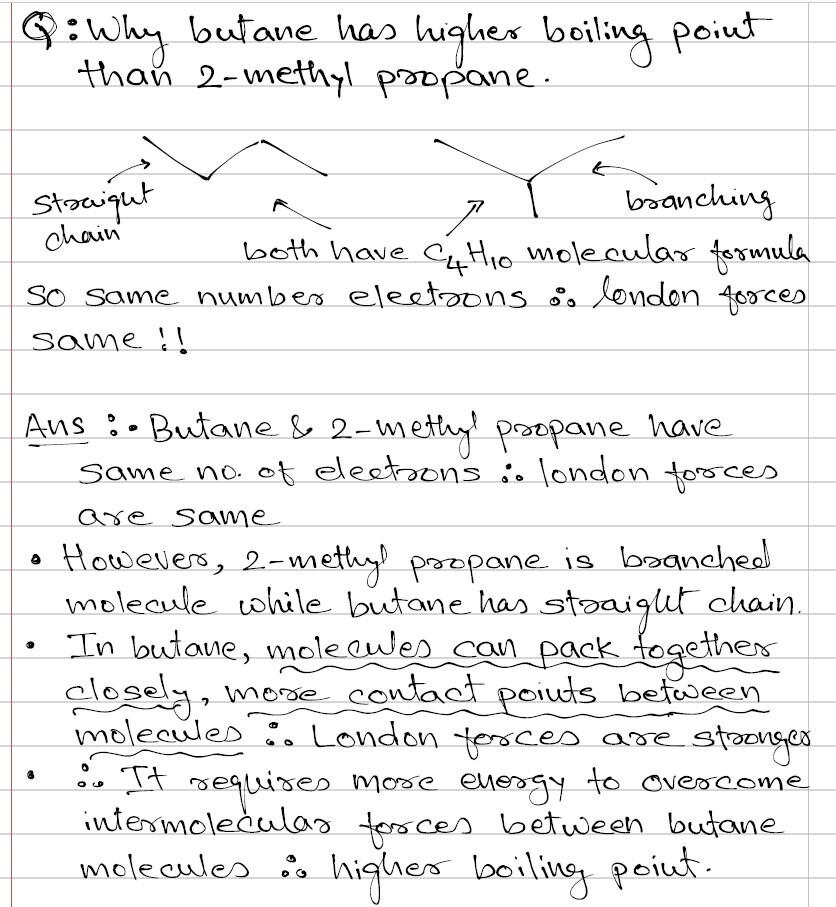 Q: Why butane has higher boiling point
than 2-methyl propane.
Straight
chain
branching
both have C₄H₁₀ molecular formula
so same number electrons ∴ london forces
same !!
Ans :• Butane & 2-methyl propane have
same no. of electrons ∴ london forces
are same
• However, 2-methyl propane is branched
molecule while butane has straight chain.
• In butane, molecules can pack together
closely, more contact points between
molecules ∴ London forces are stronger
• ∴ It requires more energy to overcome
intermolecular forces between butane
molecules ∴ higher boiling point.